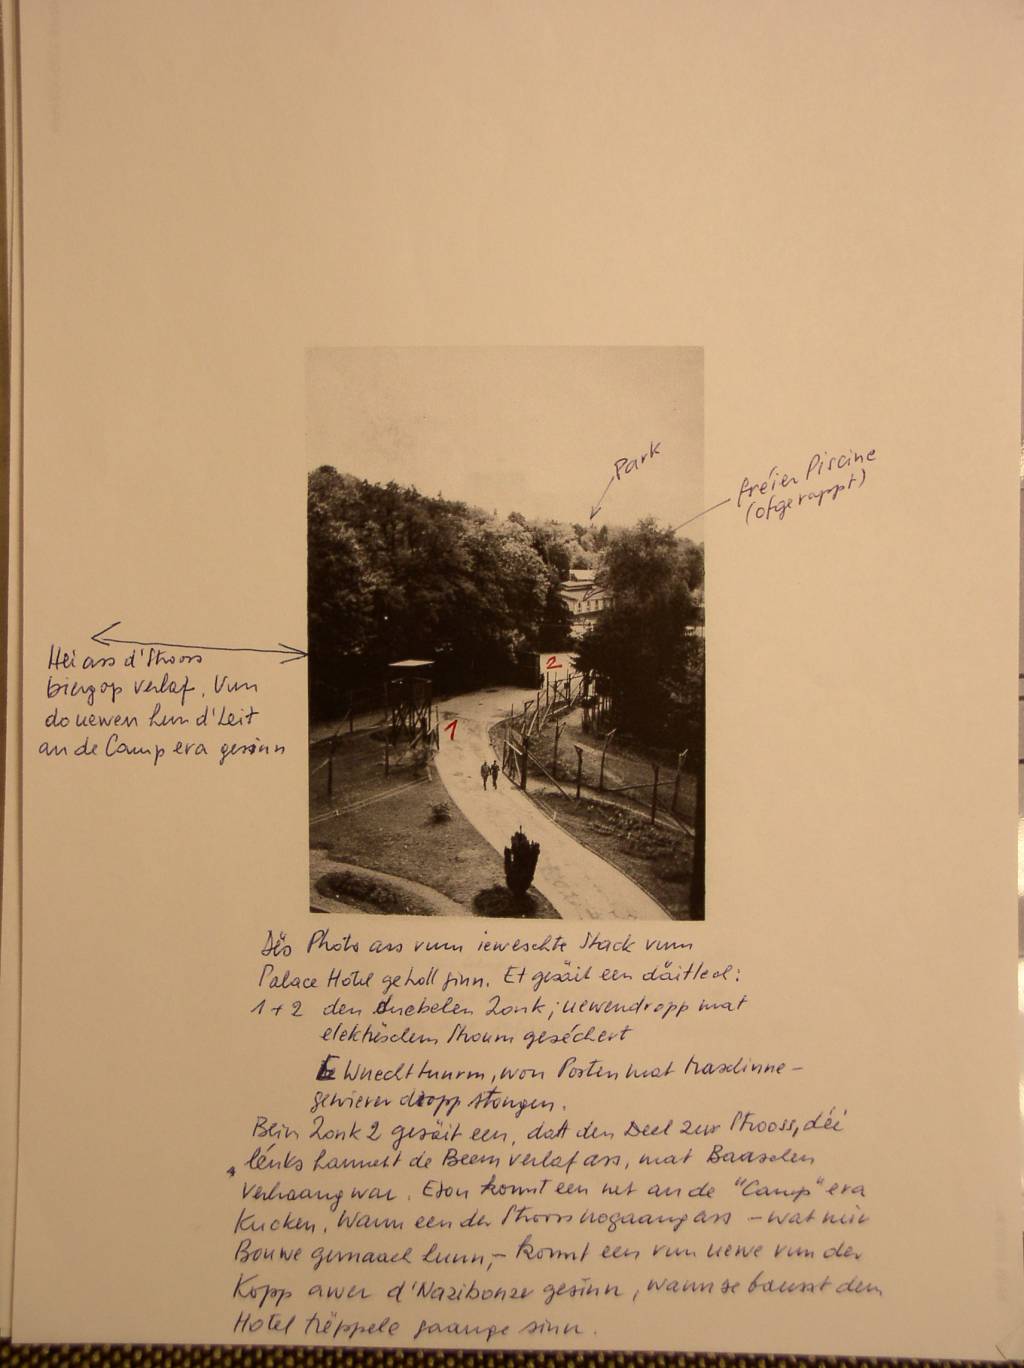 Park
fréier Piscine
(ofgerappt)
2
1
Hei ass d'Strooss
biergop verlaf. Vun
do uewen hun d'Leit
an de Camp era gesinn
Dës Photo ass vum ieweschte Stack vum
Palace Hotel geholl ginn. Et gesäit een däitlech:
1+2 den duebelen Zonk; uewendropp mat
elektrischem Stroum geséchert
Wuechttuurm, wou Posten mat Maschinne-
gewierer dropp stongen.
Beim Zonk 2 gesäit een, datt den Deel zur Strooss, déi
lénks hannert de Beem verlaf ass, mat Baaschen
verhaang war. Esou konnt een net an de "Camp" era
kucken. Wann een der Strooss nogaang ass – wat mir
Bouwe gemaach hunn, – konnt een vun uewe vun der
Kopp awer d'Nazibonze gesinn, wann se bausst dem
Hotel trëppele gaange sinn.